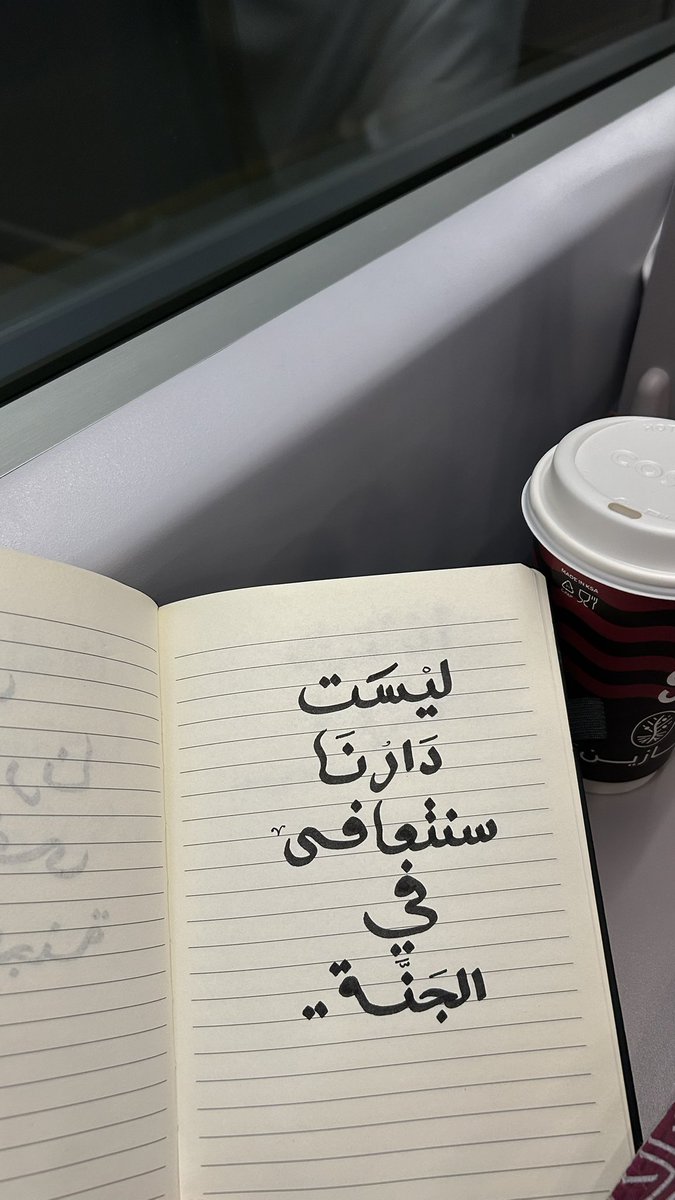 ليْسَت
دَارُنَا
سنتعافى
في
الجَنَّة..
MADE IN KSA